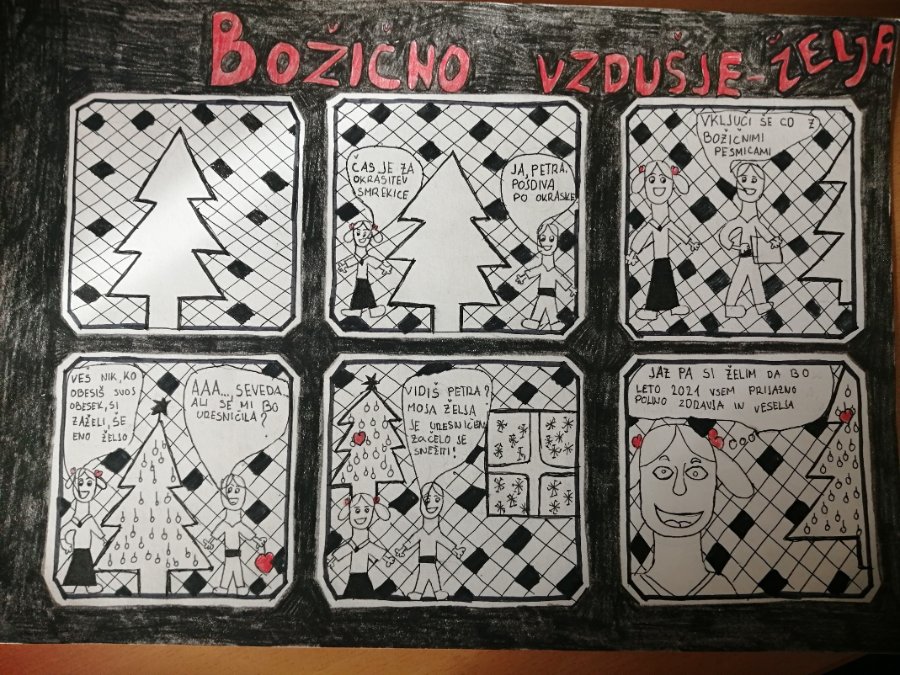 BOŽIČNO VZDUŠJE-ŽELJA
ČAS JE ZA
OKRASITEV
SMREKICE
JA, PETRA.
POJDIVA
PO OKRASKE
VKLJUČI ŠE CD Z
BOŽIČNIMI
PESMICAMI
VEŠ NIK, KO
OBESIŠ SVOJ
OBESEK, SI
ZAŽELI, ŠE
ENO ŽELJO
AAA..., SEVEDA.
ALI SE MI BO
URESNIČILA?
VIDIŠ PETRA?
MOJA ŽELJA
JE URESNIČENA
ZAČELO JE
SNEŽITI!
JAZ PA SI ŽELIM DA BO
LETO 2021 VSEM PRIJAZNO
POLNO ZDRAVJA IN VESELJA